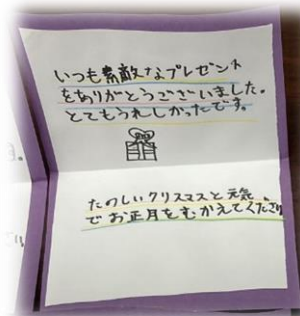 いつも素敵なプレゼント
をありがとうございました。
とてもうれしかったです。
たのしいクリスマスと元気
でお正月をむかえてくださり